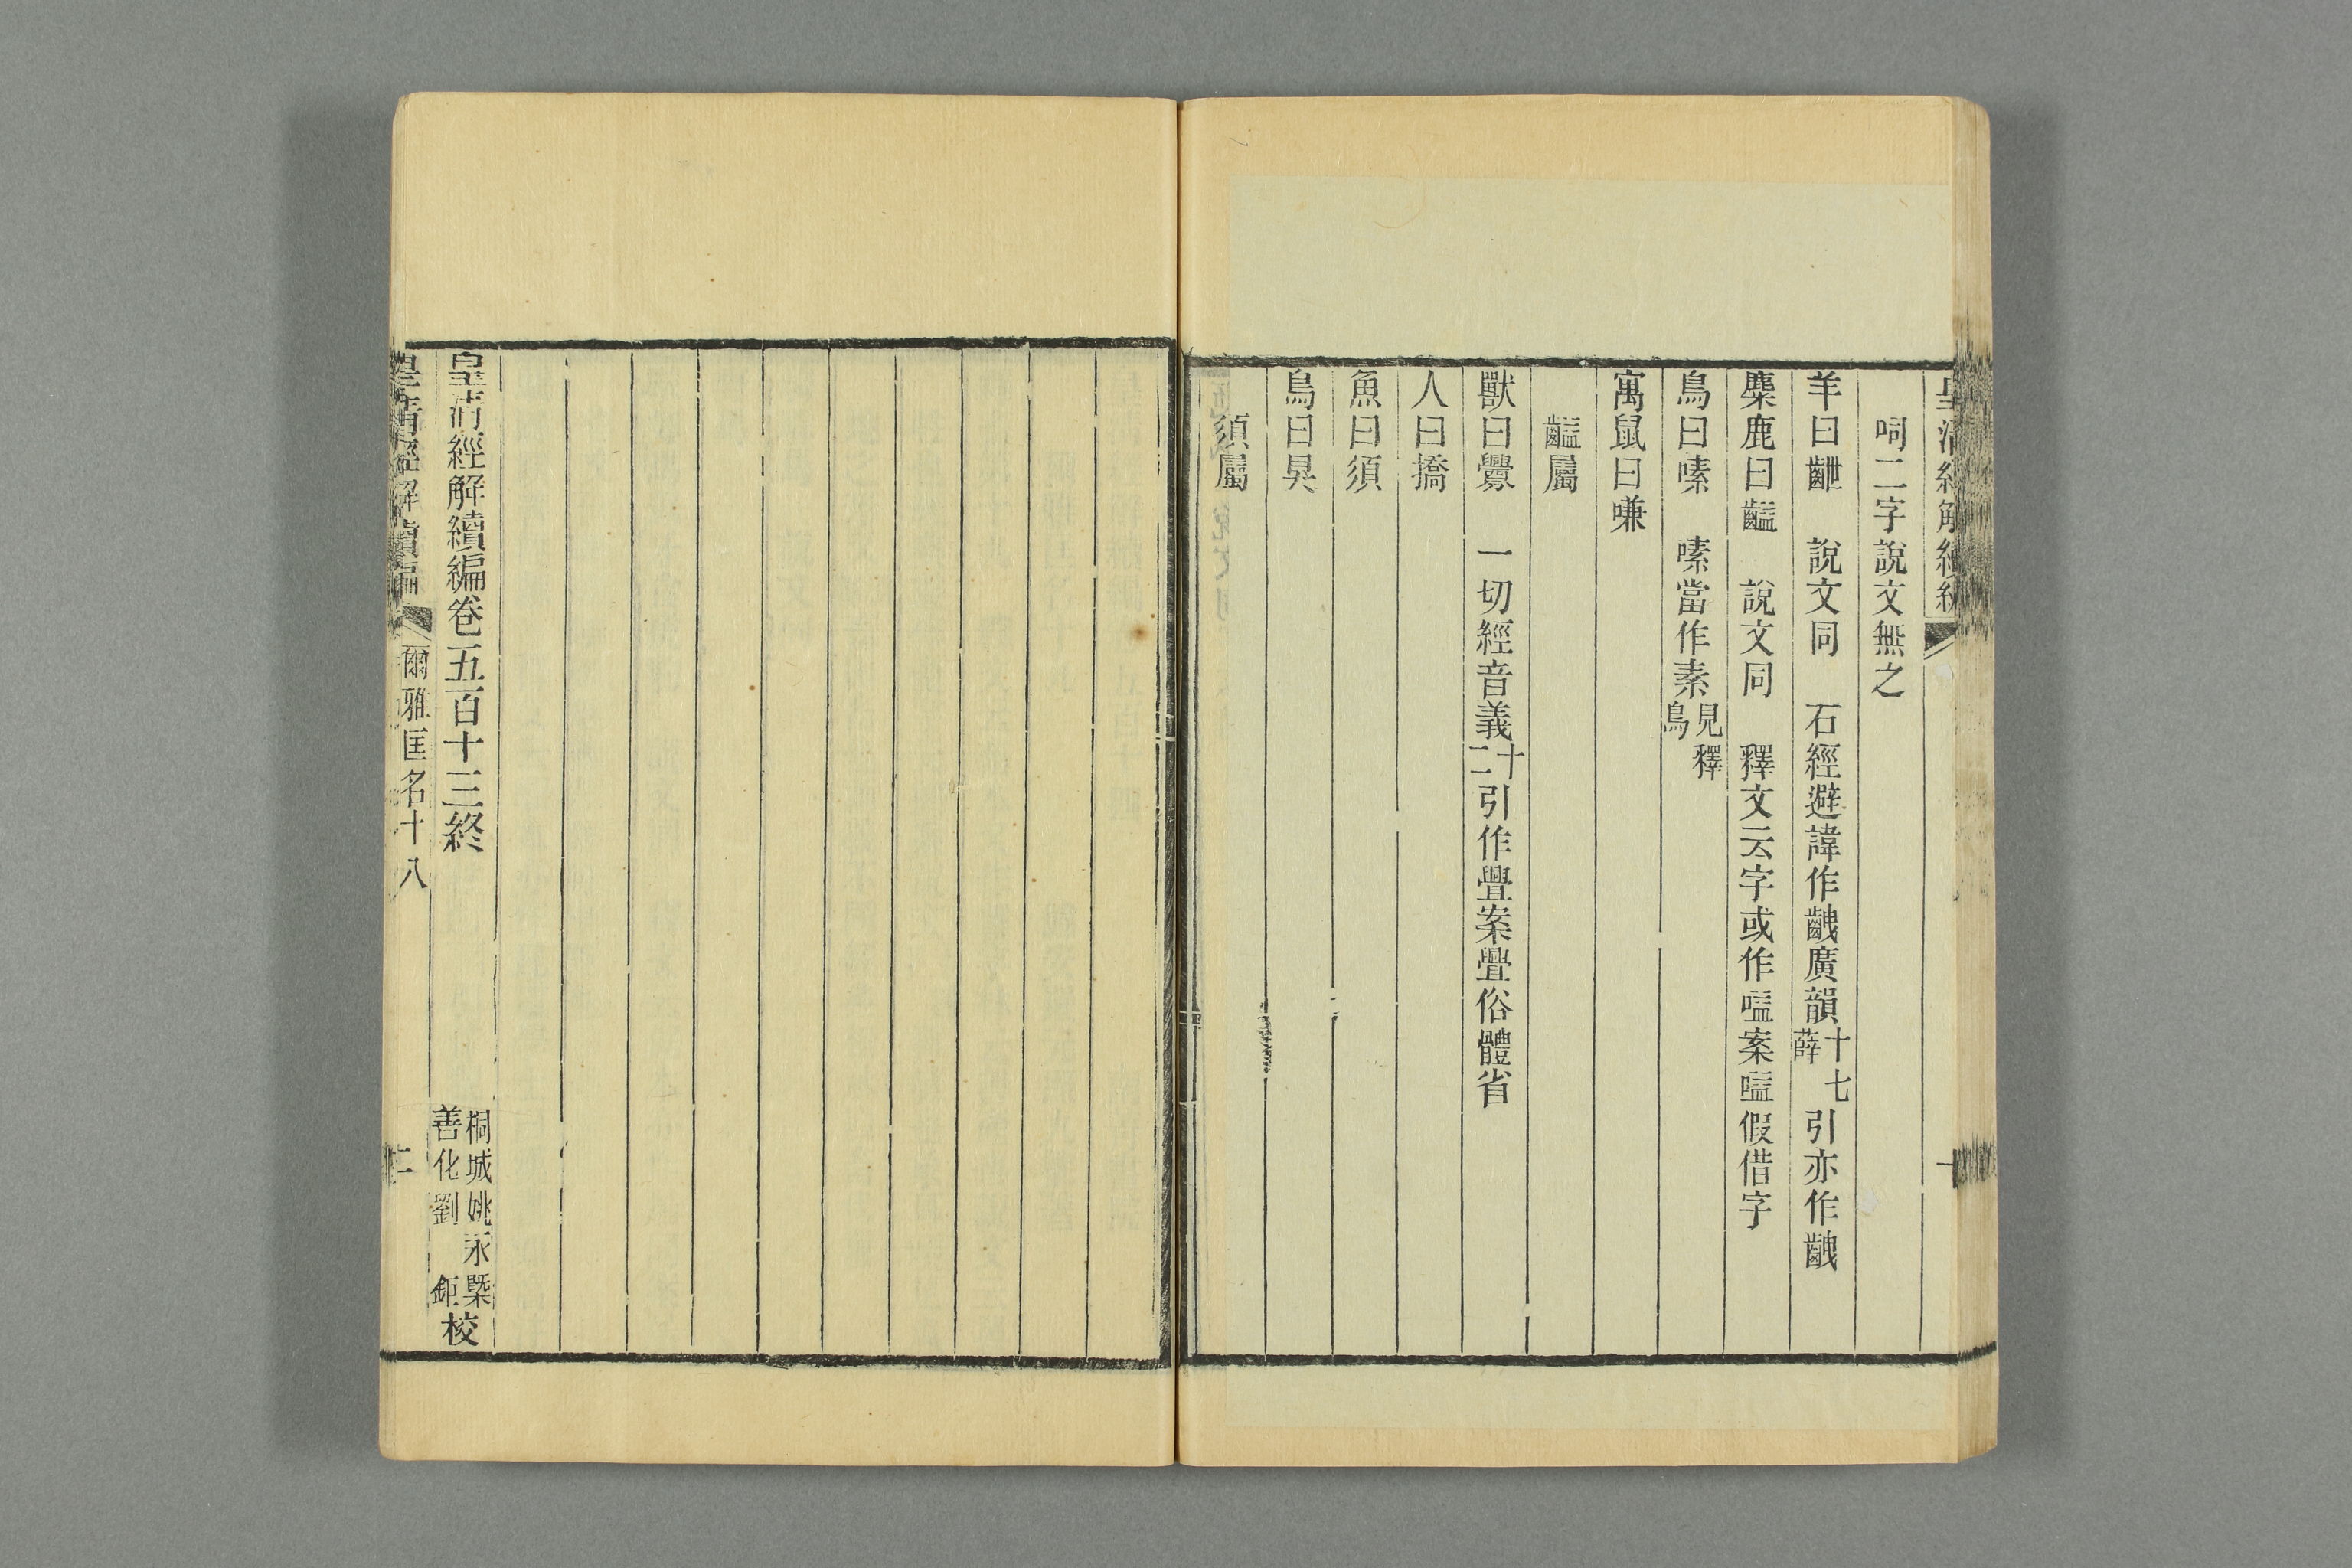 皇清經解續編
呞二字說文無之
羊曰齛　說文同　石經避諱作齥廣韻十七薛引亦作齥
麋鹿曰齸　說文同　釋文云字或作嗌案嗌假借字
鳥曰嗉　嗉當作素見釋鳥
寓鼠曰嗛
齸屬
獸曰釁　一切經音義十二引作亹案亹俗體省
人曰撟
魚曰須
鳥曰狊
須屬
皇清經解續編卷五百十三終　桐城姚永槩善化劉鉅校
皇清經解續編　爾雅匡名十八　十二